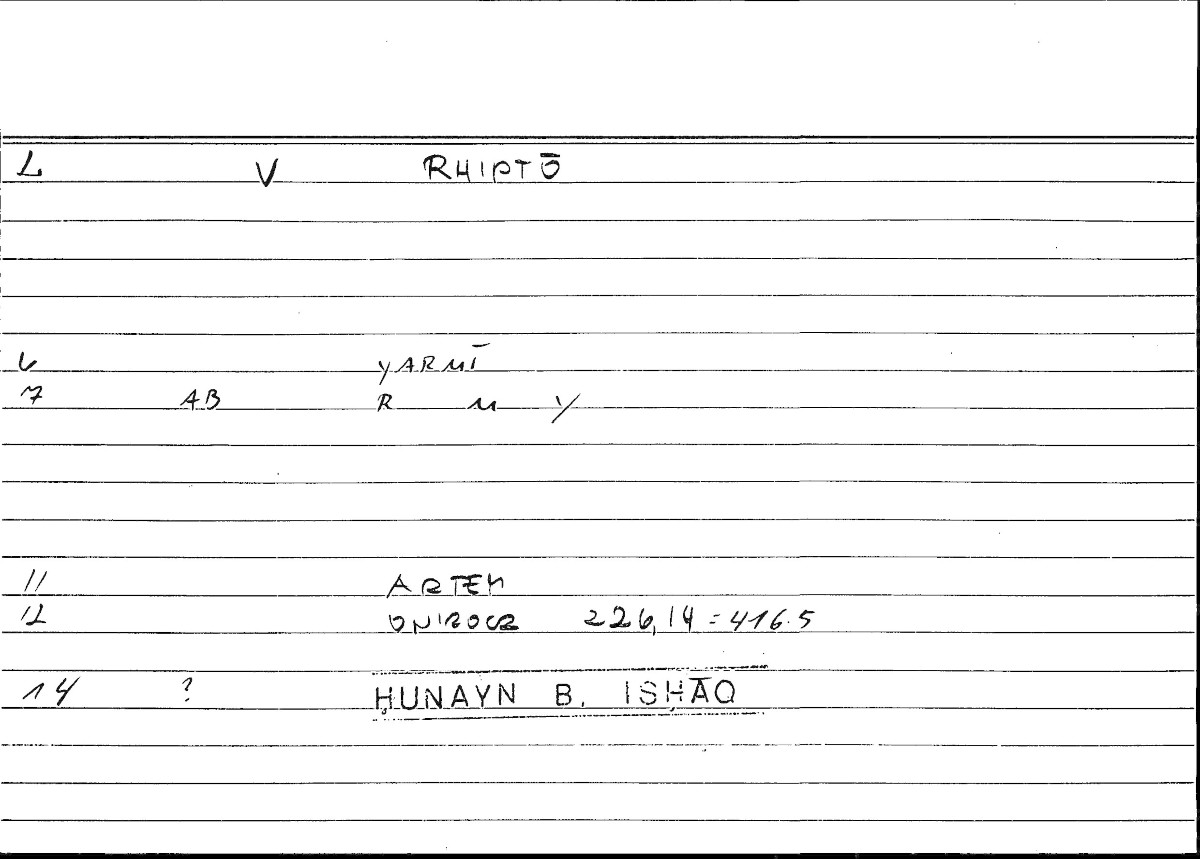 1 V RHIPTŌ
6 YARMĪ
7 AB R M Y
11 ARTEM
12 ONIROCR 226,14 = 416.5
14 ? ḤUNAYN B. ISḤĀQ